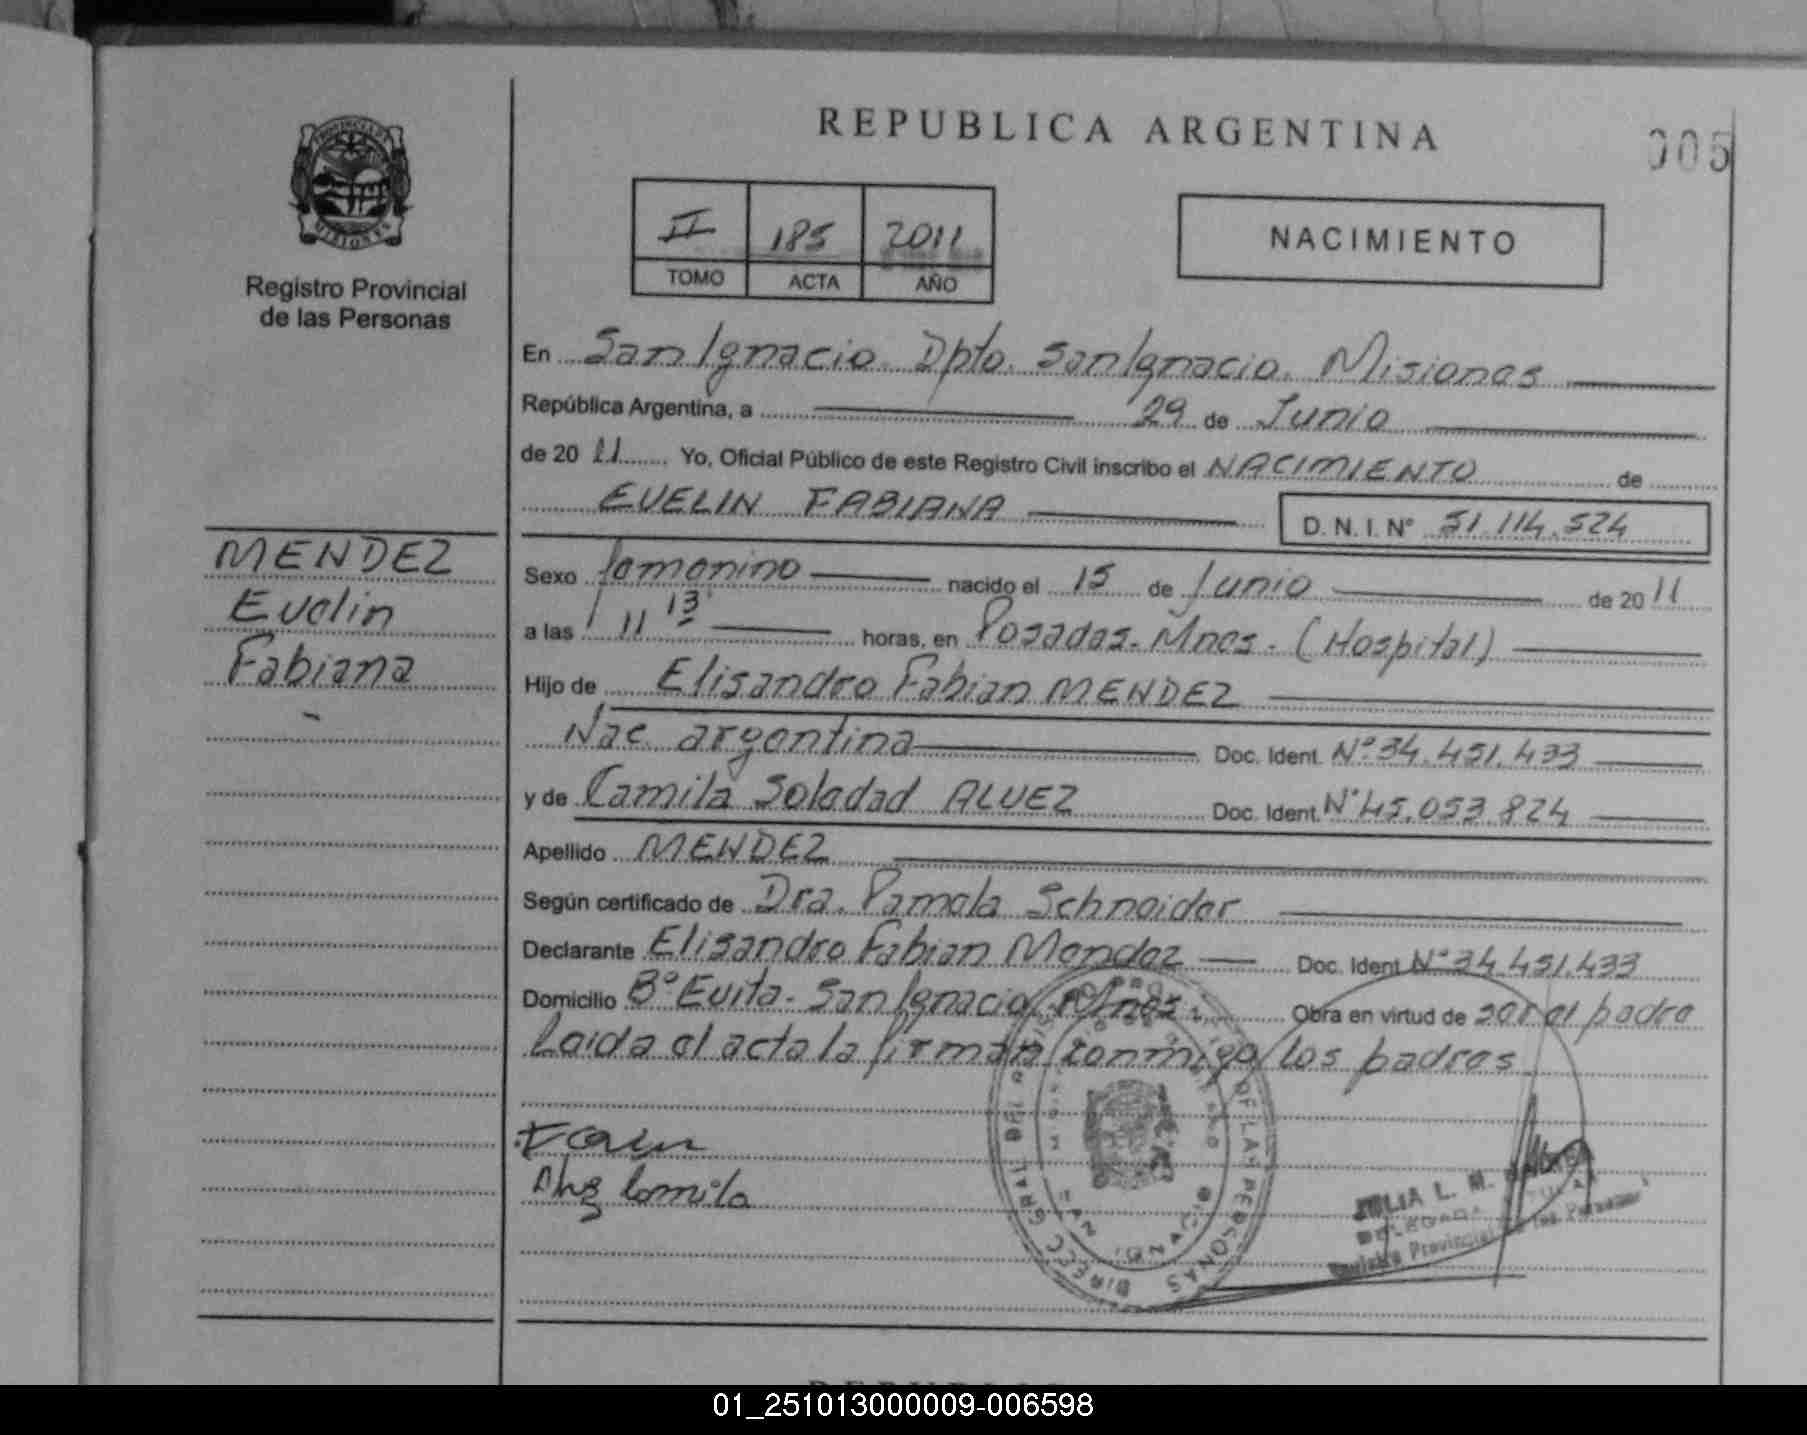 REPUBLICA ARGENTINA
005
PROVINCIA DE
MISIONES
Registro Provincial
de las Personas
II 185 2011
TOMO ACTA AÑO
NACIMIENTO
En San Ignacio. Dpto. San Ignacio. Misiones
República Argentina, a 29 de Junio
de 20 11 Yo, Oficial Público de este Registro Civil inscribo el NACIMIENTO de
EVELIN FABIANA D. N. I. Nº 51.114.524
MENDEZ
Evelin
Fabiana
Sexo femenino nacido el 15 de Junio de 20 11
a las 11 13 horas, en Posadas. Mnes. (Hospital)
Hijo de Elisandro Fabian MENDEZ
Nac. argentina Doc. Ident. Nº 34.451.433
y de Camila Soledad ALVEZ Doc. Ident. Nº 45.053.824
Apellido MENDEZ
Según certificado de Dra. Pamela Schneider
Declarante Elisandro Fabian Mendez Doc. Ident Nº 34.451.433
Domicilio Bº Evita. San Ignacio Mnes. Obra en virtud de ser el padre
Leida el acta la firman conmigo los padres
Camila
DIRECC GRAL DEL OF LAS PERSONAS
SAN IGNACIO
JULIA L. M.
DELEGADA TITULAR
Registro Provincial de las Personas
01_251013000009-006598